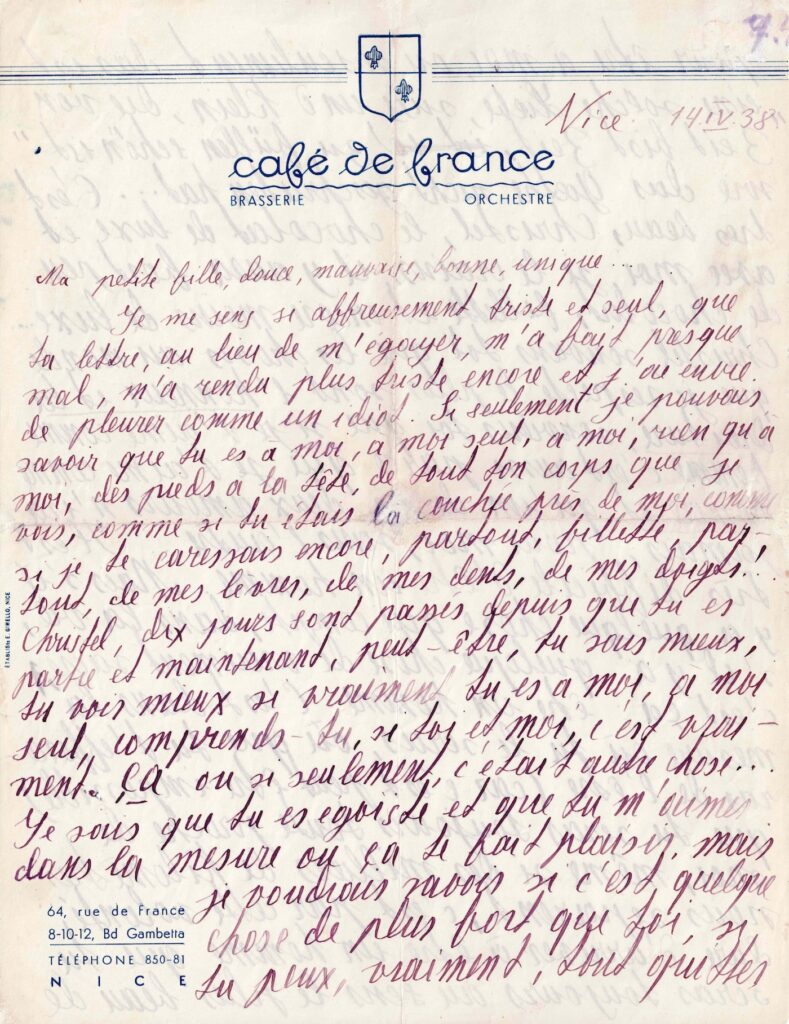 7.
Nice 14 IV 38
café de france
BRASSERIE ORCHESTRE
Ma petite fille, douce, mauvaise, bonne, unique...
Je me sens si affreusement triste et seul, que
ta lettre, au lieu de m'égayer, m'a fait presque
mal, m'a rendu plus triste encore et j'ai envie
de pleurer comme un idiot. Si seulement je pouvais
savoir que tu es à moi, a moi seul, a moi, rien qu'à
moi, des pieds a la tête, de tout ton corps que je
vois, comme si tu étais la couchée près de moi, comme
si je te caressais encore, partout, fillette, par-
tout, de mes levres, de mes dents, de mes doigts!
Christel, dix jours sont passés depuis que tu es
partie et maintenant, peut-être, tu sais mieux,
tu vois mieux si vraiment tu es a moi, à moi
seul, comprends-tu, si toi et moi, c'est vrai-
ment "ça" ou si seulement, c'était autre chose...
Je sais que tu es egoiste et que tu m'aimes
dans la mesure ou ça te fait plaisir, mais
je voudrais savoir si c'est quelque
chose de plus fort que toi, si
tu peux, vraiment, tout quitter
ETABLISts E. GIMELLO, NICE
64, rue de France
8-10-12, Bd Gambetta
TÉLÉPHONE 850-81
NICE